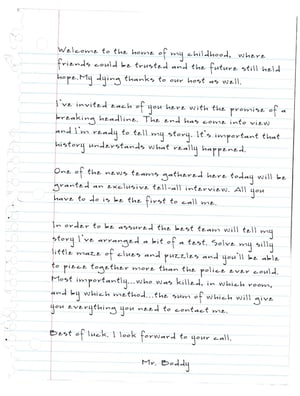 Welcome to the home of my childhood, where
friends could be trusted and the future still held
hope.My dying thanks to our host as well.
I've invited each of you here with the promise of a
breaking headline. The end has come into view
and I'm ready to tell my story. It's important that
history understands what really happened.
One of the news teams gathered here today will be
granted an exclusive tell-all interview. All you
have to do is be the first to call me.
In order to be assured the best team will tell my
story I've arranged a bit of a test. Solve my silly
little maze of clues and puzzles and you'll be able
to piece together more than the police ever could.
Most importantly...who was killed, in which room,
and by which method...the sum of which will give
you everything you need to contact me.
Best of luck. I look forward to your call.
Mr. Boddy